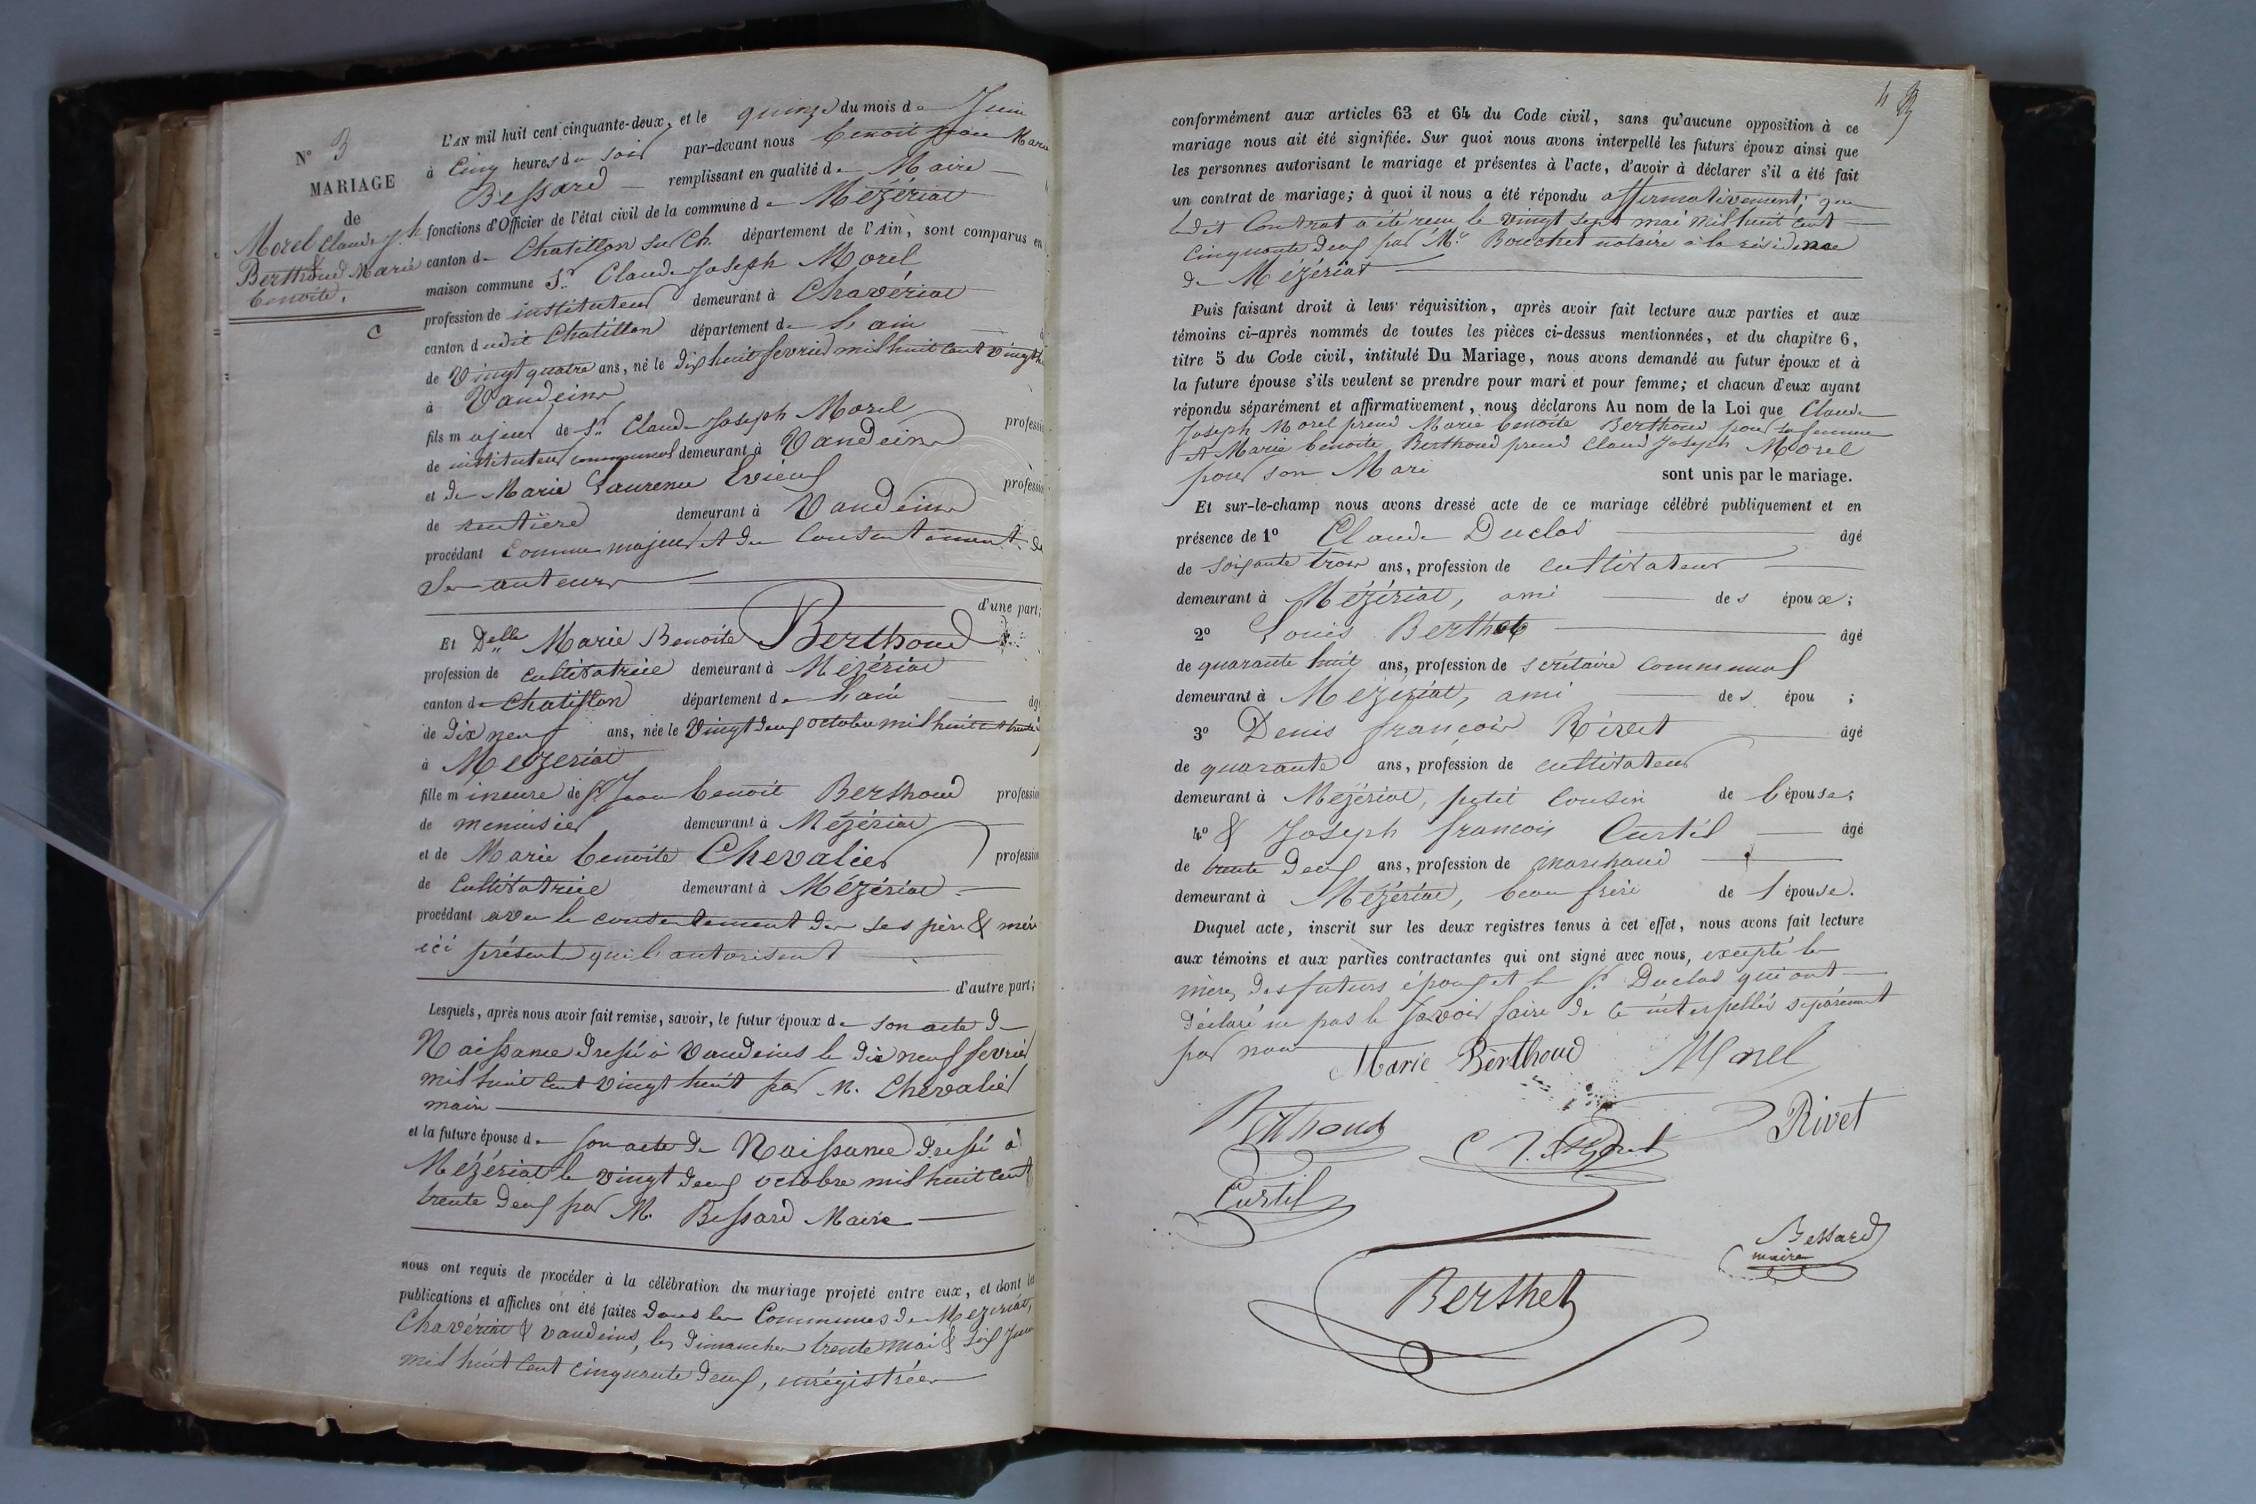 N° 3
MARIAGE
de
Morel Claude Jh
&
Berthoud Marie
benoite.
C
L'AN mil huit cent cinquante-deux, et le quinze du mois de Juin
à Cinq heures du soir par-devant nous benoit Jean Marie
Bessard remplissant en qualité de Maire
fonctions d'Officier de l'état civil de la commune de Mézériat
canton de Chatillon sur Ch. département de l'Ain, sont comparus en
maison commune Sr. Claude Joseph Morel
profession de instituteur demeurant à Chavériat
canton dudit Chatillon département de L'ain
de Vingt quatre ans, né le dix huit fevrier mil huit cent vingt h
à Vandeins
fils majeur de Sr Claude Joseph Morel professi
de instituteur communal demeurant à Vandeins
et de Marie Laurence professi
de rentière demeurant à Vandeins
procédant Comme majeur et du Consentement de
Ses auteurs
d'une part;
Et Delle Marie Benoite Berthoud
profession de cultivatrice demeurant à Mézériat
canton de Chatillon département de L'ain âg
de dix neuf ans, née le vingt deux octobre mil huit ct trente
à Mézériat
fille mineure de Sr Jean benoit Berthoud professio
de menuisier demeurant à Mézériat
et de Marie benoite Chevalier profession
de Cultivatrice demeurant à Mézériat
procédant avec le consentement de ses père & mère
ici présents qui l'autorisent
d'autre part;
Lesquels, après nous avoir fait remise, savoir, le futur époux de son acte de
Naissance dressé à Vandeins le dix neuf fevrier
mil huit cent vingt huit par M. Chevalier
maire
et la future épouse de son acte de Naissance dressé à
Mézériat le vingt deux octobre mil huit cent
trente deux par M. Bessard Maire
nous ont requis de procéder à la célébration du mariage projeté entre eux, et dont les
publications et affiches ont été faites dans les Communes de Mézériat,
Chavériat & vandeins, les dimanches trente mai & six Juin
mil huit cent cinquante deux, enrégistrées
conformément aux articles 63 et 64 du Code civil, sans qu'aucune opposition à ce
mariage nous ait été signifiée. Sur quoi nous avons interpellé les futurs époux ainsi que
les personnes autorisant le mariage et présentes à l'acte, d'avoir à déclarer s'il a été fait
un contrat de mariage; à quoi il nous a été répondu affirmativement; que
ledit Contrat a été recu le vingt sept mai mil huit cent
cinquante deux par Me Bouchet notaire à la résidence
de Mézériat
Puis faisant droit à leur réquisition, après avoir fait lecture aux parties et aux
témoins ci-après nommés de toutes les pièces ci-dessus mentionnées, et du chapitre 6,
titre 5 du Code civil, intitulé Du Mariage, nous avons demandé au futur époux et à
la future épouse s'ils veulent se prendre pour mari et pour femme; et chacun d'eux ayant
répondu séparément et affirmativement, nous déclarons Au nom de la Loi que Claude
Joseph Morel prend Marie benoite Berthoud pour sa femme
et Marie benoite Berthoud prend Claud Joseph Morel
pour son Mari sont unis par le mariage.
Et sur-le-champ nous avons dressé acte de ce mariage célébré publiquement et en
présence de 1° Claude Duclos âgé
de soixante trois ans, profession de cultivateur
demeurant à Mézériat, ami des époux;
2° Louis Berthet âgé
de quarante huit ans, profession de secrétaire communal
demeurant à Mézériat, ami des épou ;
3° Denis françois Rivet âgé
de quarante ans, profession de cultivateur
demeurant à Mézériat, petit Cousin de l'épouse;
4° & Joseph francois Curtil âgé
de trente deux ans, profession de marchand
demeurant à Mézériat, beau frère de l'épouse.
Duquel acte, inscrit sur les deux registres tenus à cet effet, nous avons fait lecture
aux témoins et aux parties contractantes qui ont signé avec nous, excepté les
mères des futurs époux et le Sr. Duclos qui ont
déclaré ne pas le savoir faire de ce interpellés séparément
par nous
Marie Berthoud Morel
Berthoud Rivet
Curtil
Bessard
maire
Berthet